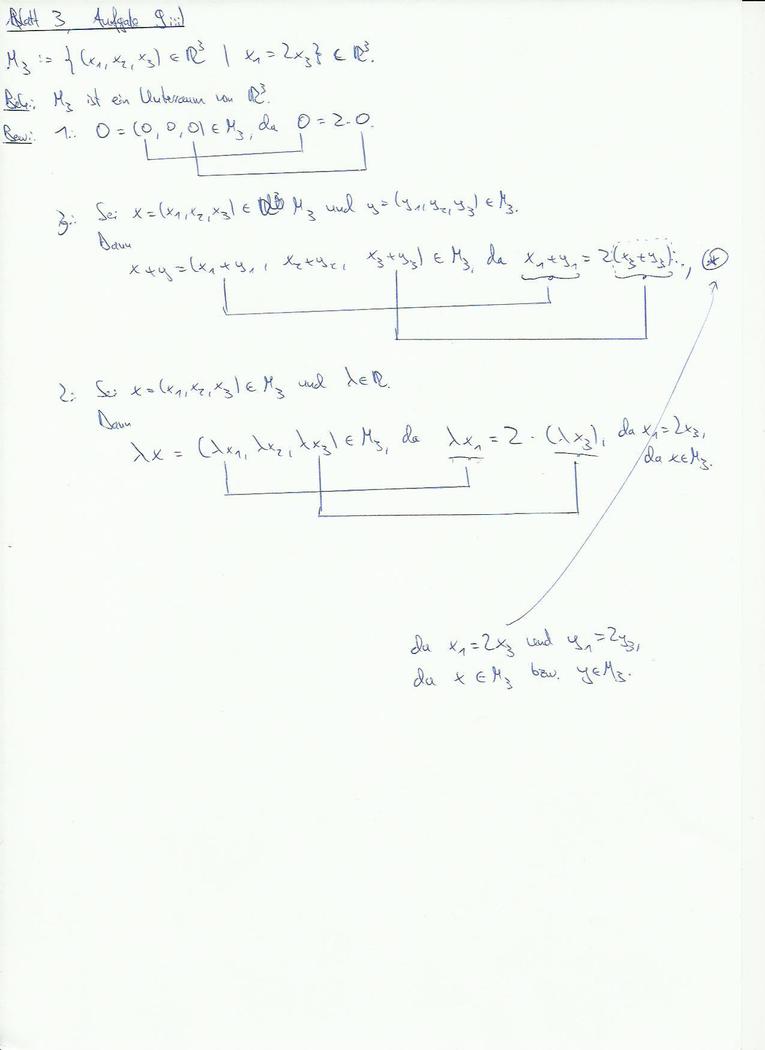 Blatt 3, Aufgabe 9iii)
M₃ := { (x₁, x₂, x₃) ∈ ℝ³ | x₁ = 2x₃ } ∈ ℝ³.
Beh.: M₃ ist ein Unterraum von ℝ³.
Bew.: 1.: 0 = (0, 0, 0) ∈ M₃, da 0 = 2·0.
3.: Sei x = (x₁, x₂, x₃) ∈ M₃ und y = (y₁, y₂, y₃) ∈ M₃.
Dann
x+y = (x₁+y₁, x₂+y₂, x₃+y₃) ∈ M₃, da x₁+y₁ = 2(x₃+y₃), ⊛
2.: Sei x = (x₁, x₂, x₃) ∈ M₃ und λ ∈ ℝ.
Dann
λx = (λx₁, λx₂, λx₃) ∈ M₃, da λx₁ = 2 · (λx₃), da x₁ = 2x₃,
da x ∈ M₃.
da x₁ = 2x₃ und y₁ = 2y₃,
da x ∈ M₃ bzw. y ∈ M₃.